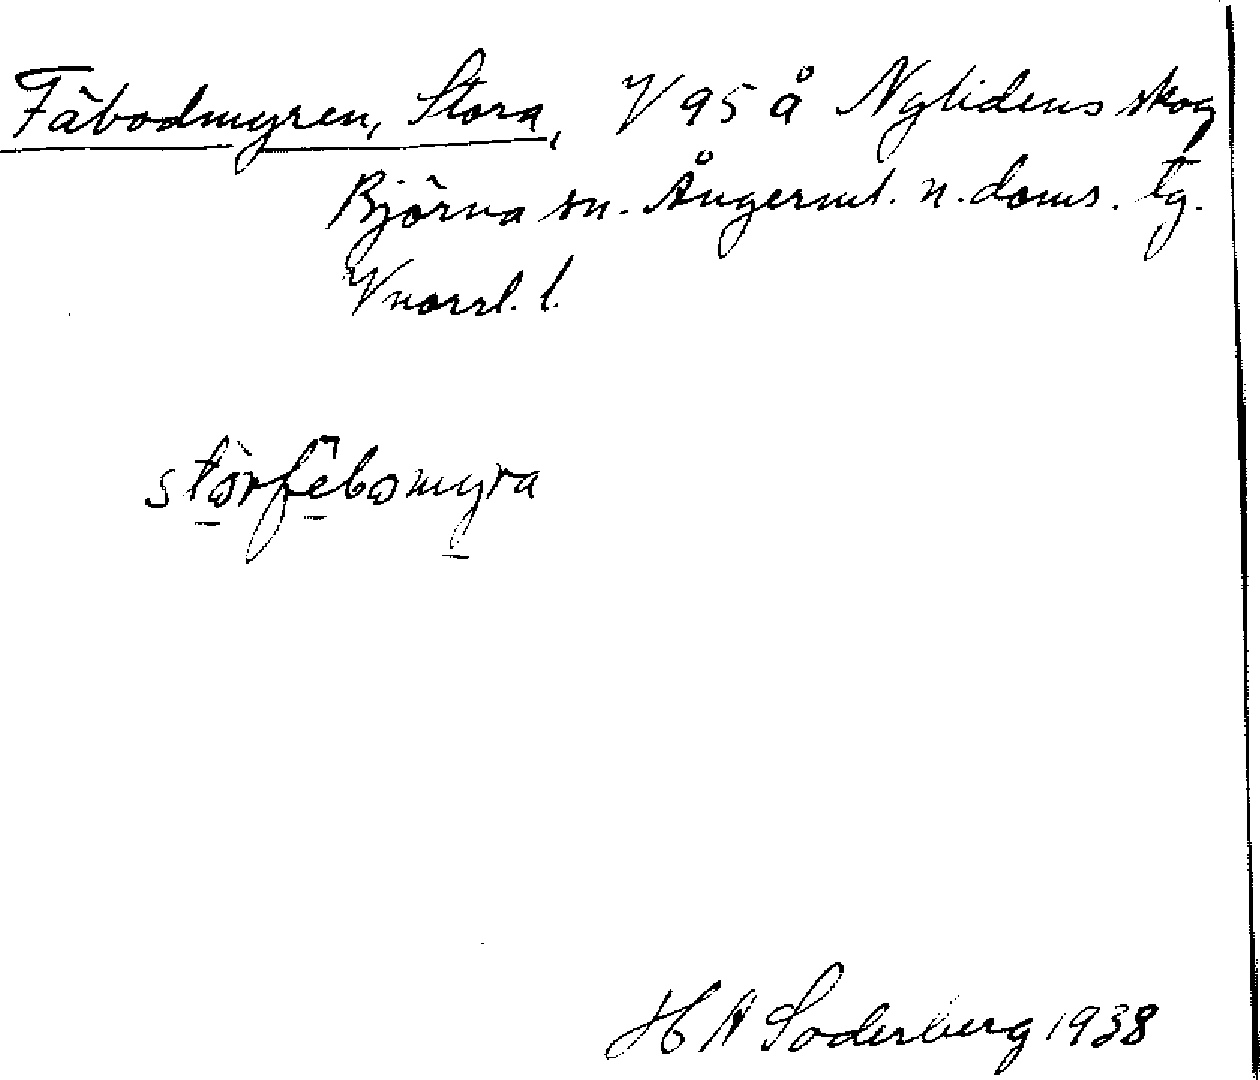 Fäbodmyren, Stora, V 95 å Nylidens skog
Björna sn. Ångerml. n. doms. tg.
Vnorrl. l.
störfèbomyra
H A Söderberg 1938